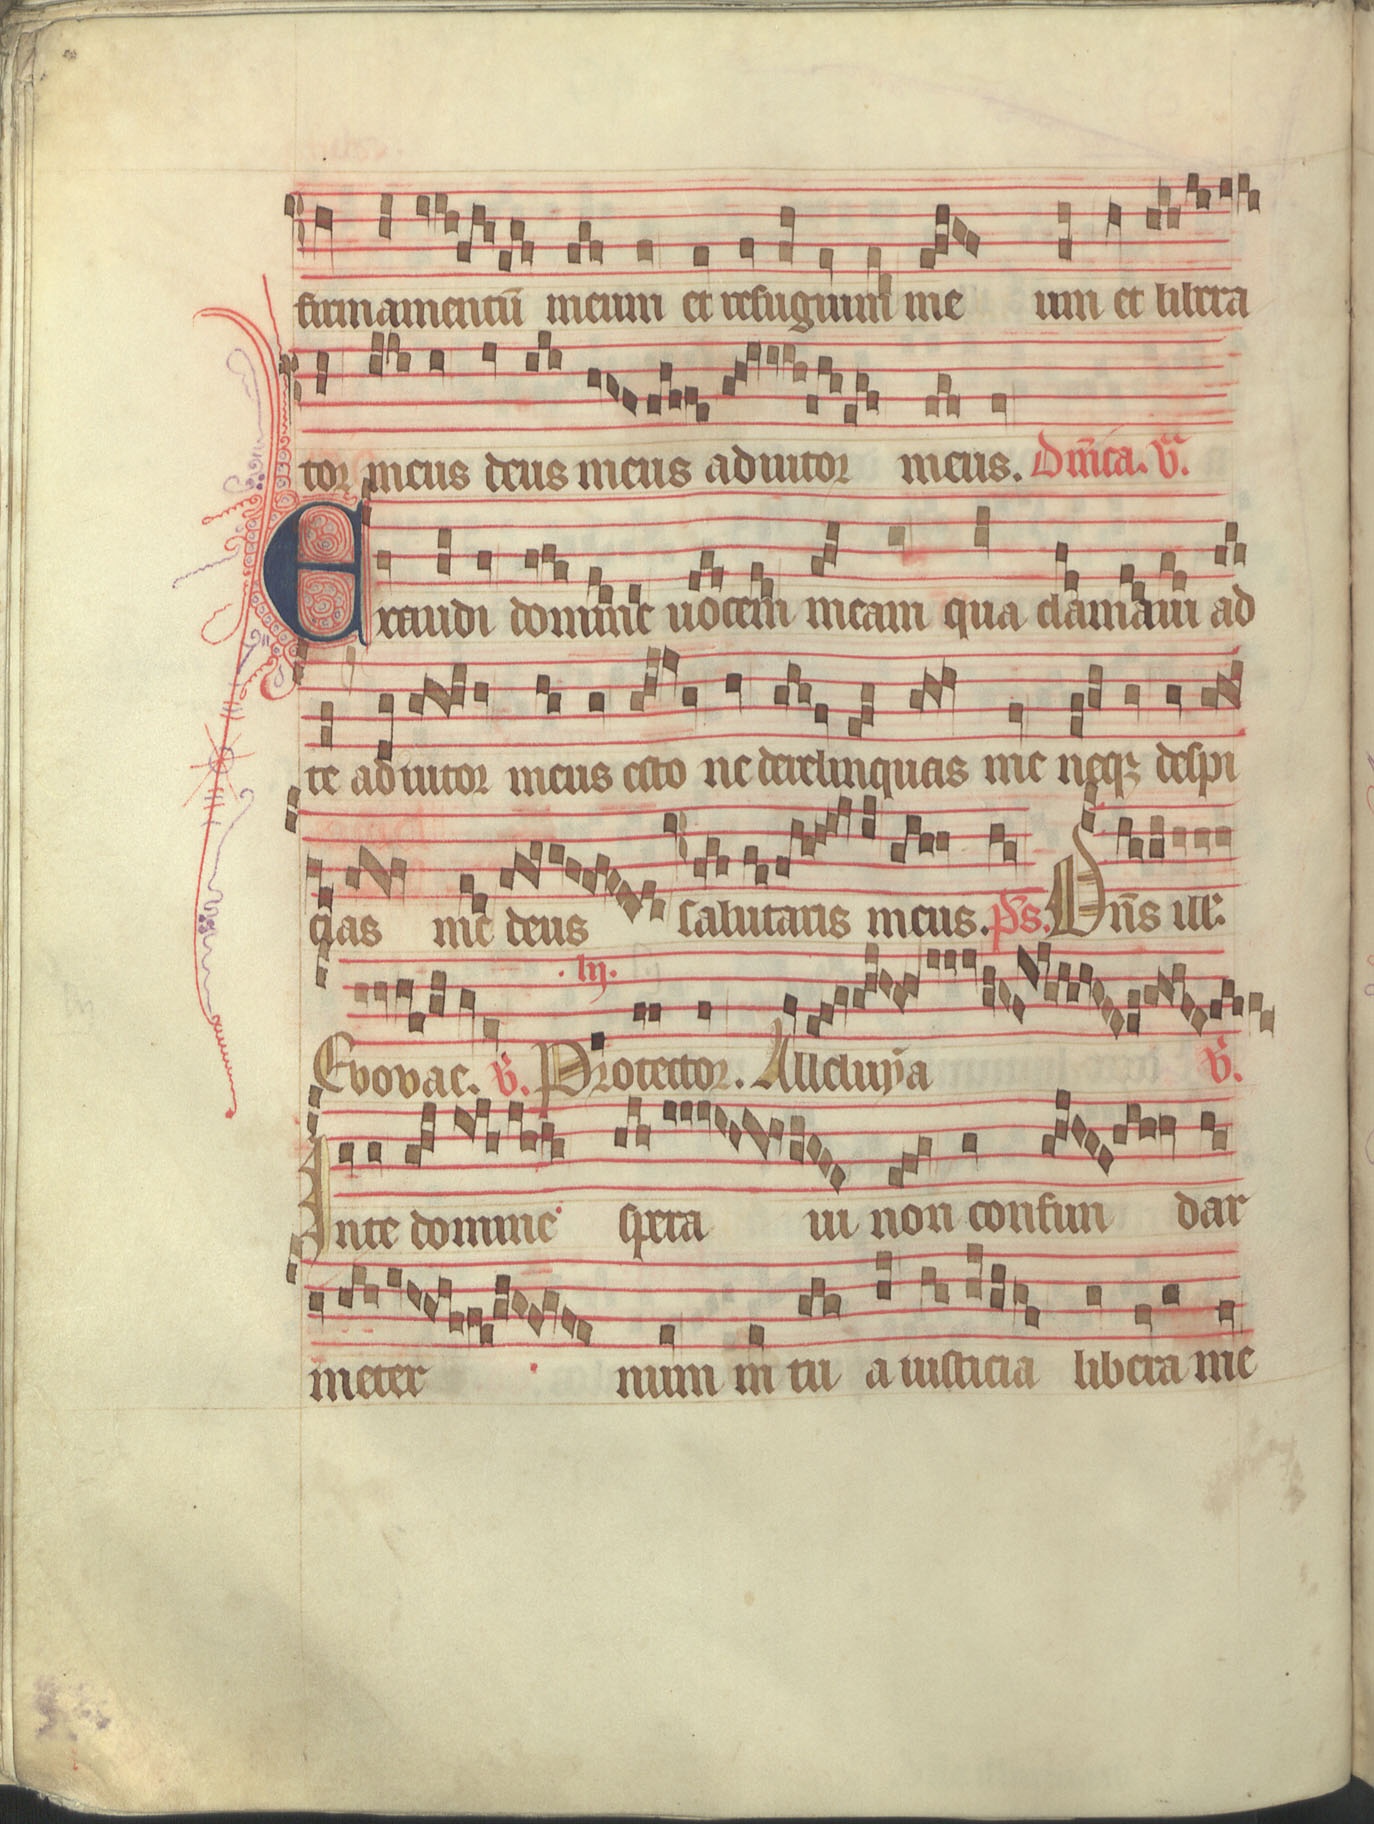 firmamentū meum et refugium me um et libera
tor meus deus meus adiutor meus. Dn̄ica. v̄.
Exaudi domine uocem meam qua clamaui ad
te adiutor meus esto ne derelinquas me neqꝫ despi
cias me deus salutaris meus. p̄s. Dn̄s ill.
Evovae. v̄. Protector. Alleluya v̄.
In te domine spera ui non confun dar
ineter num in tu a iusticia libera me